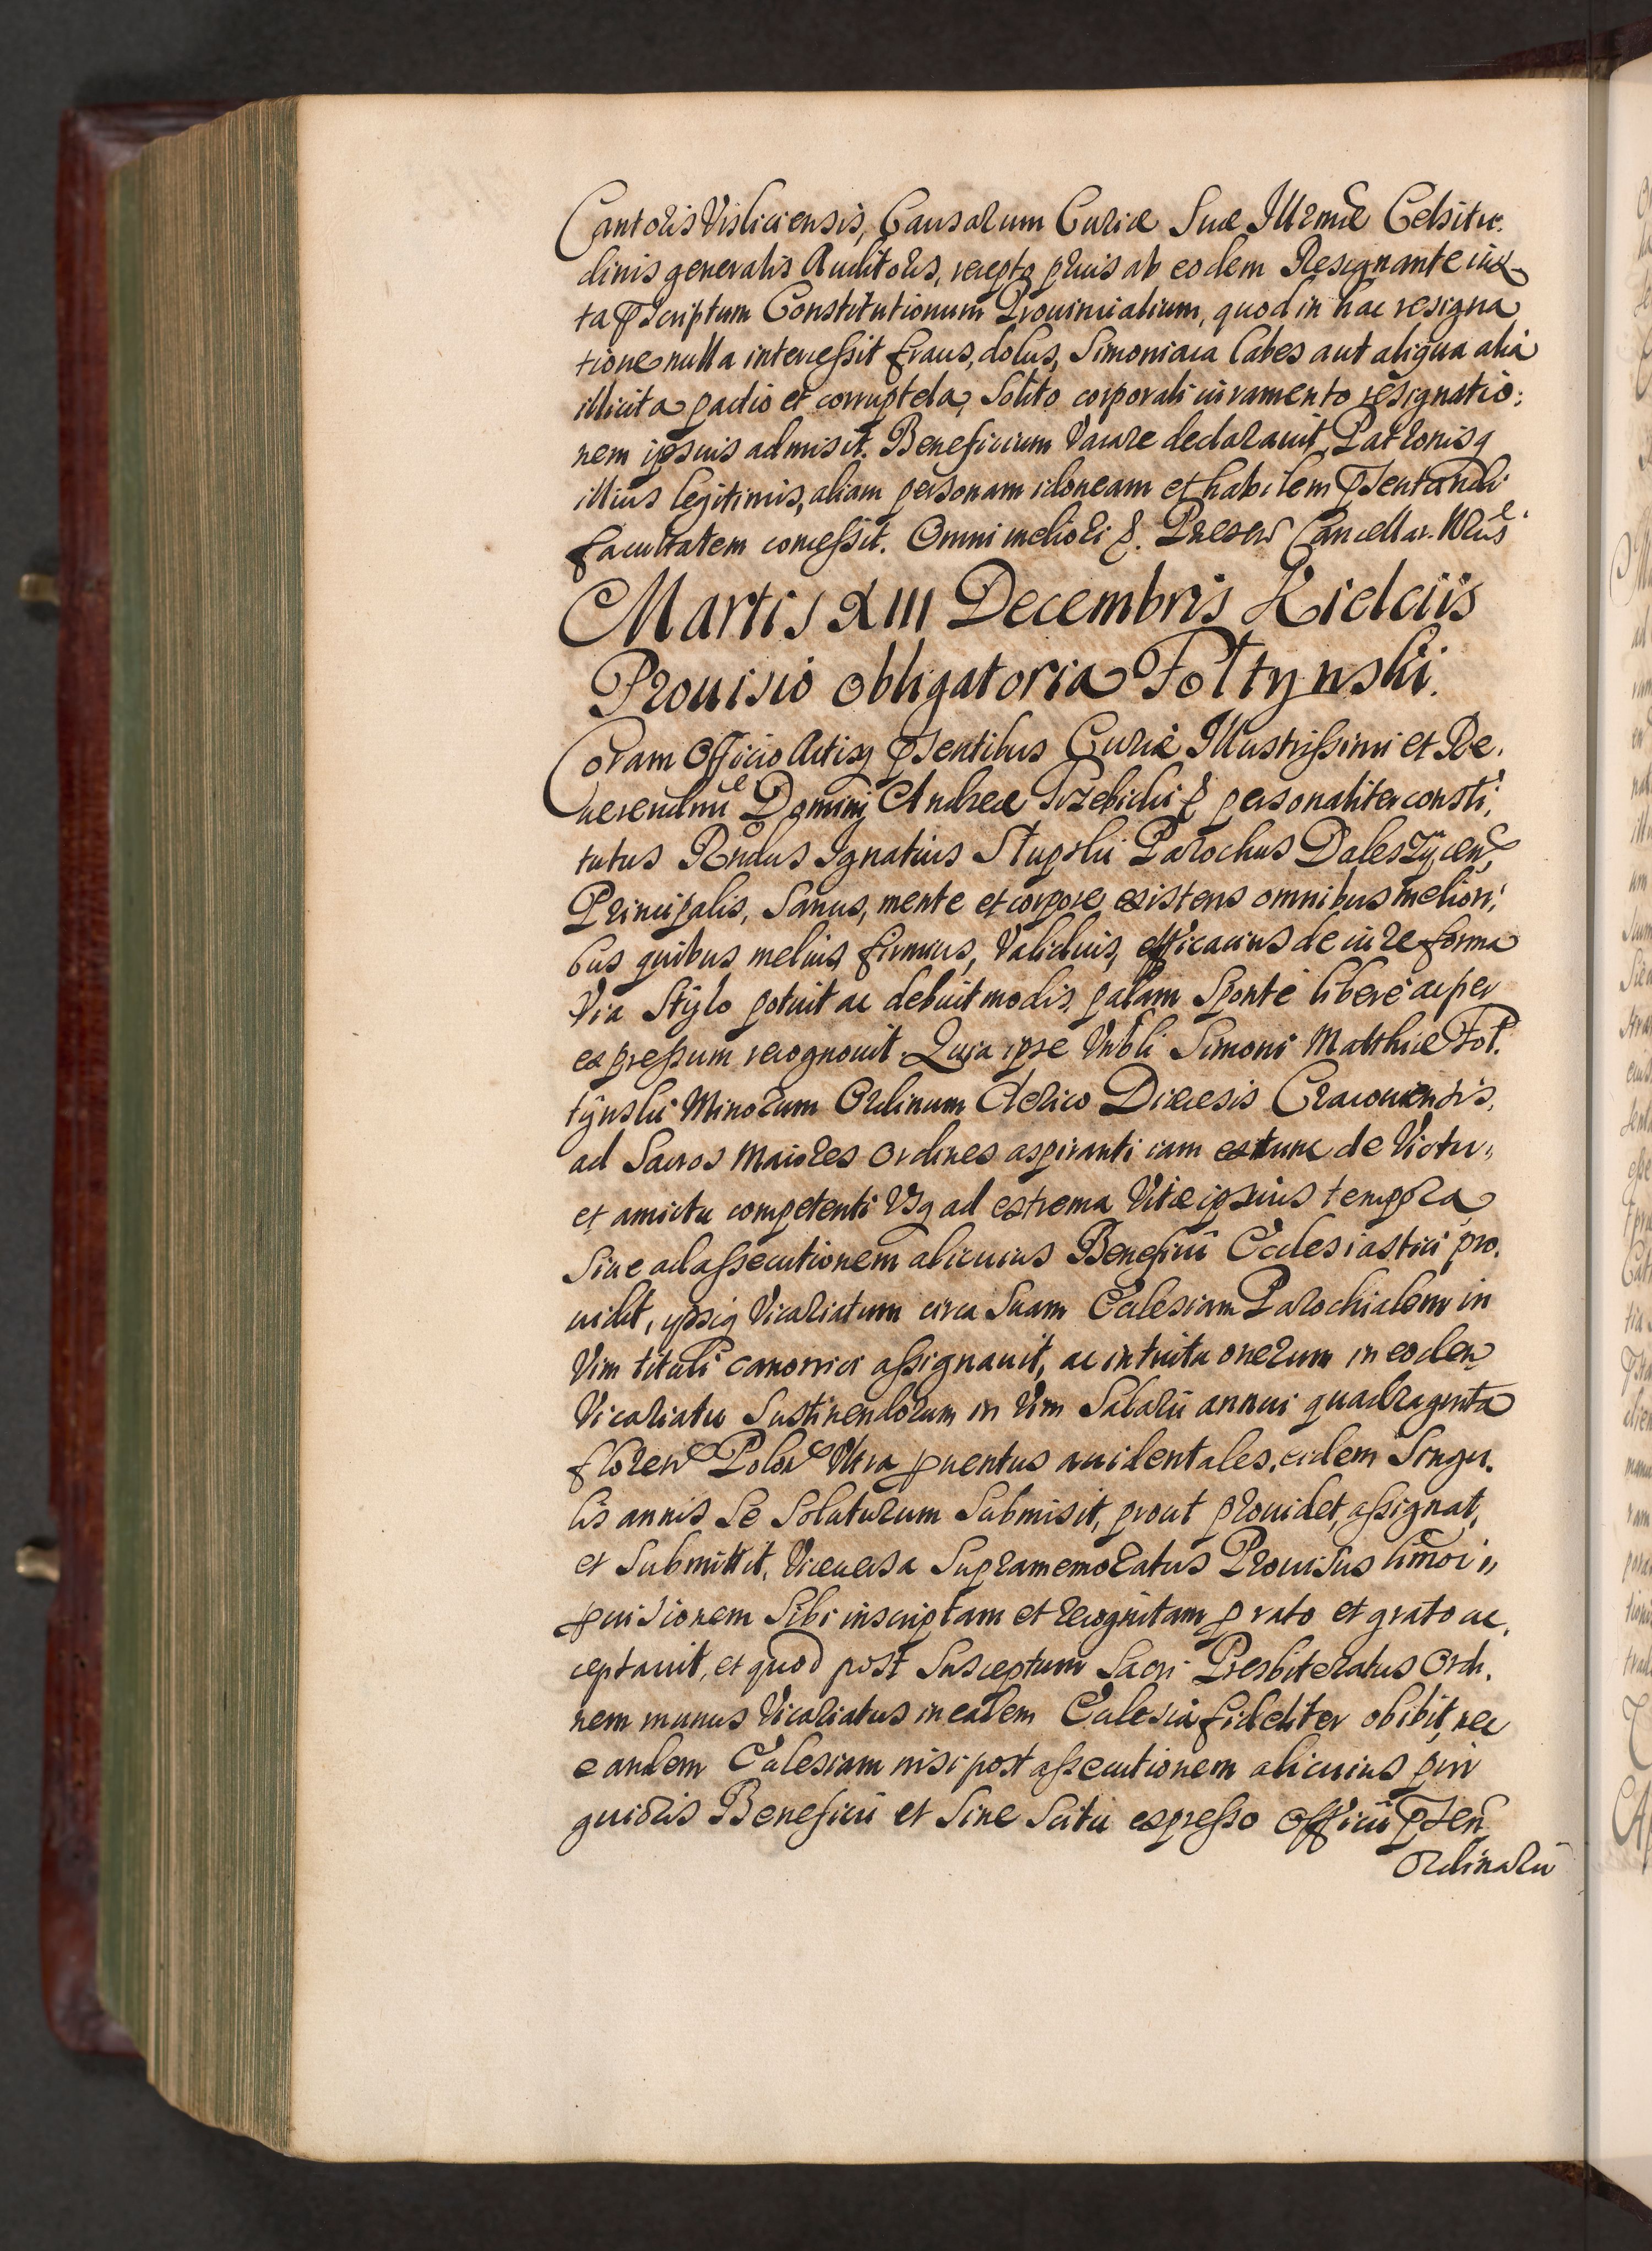 Cantoris Visliciensis, Causarum Curiæ Suæ Illrmæ Celsitu:
dinis generalis Auditoris, recepto prius ab eodem Resignante iux
ta pscriptum Constitutionum Prouincialium, quod in hac resigna
tione nulla intercessit fraus, dolus, Simoniaca labes aut aliqua alia
illicita pactio et corruptela, Solito corporali iuramento resignatio:
nem ipsius admisit. Beneficium Vacare declarauit, Patronisq
illius legitimis, aliam personam idoneam et habilem psentandi
facultatem concessit. Omni meliori &. Presen Cancellar.
Martis XIII Decembris Kielciis
Prouisio obligatoria Foltynski.
Coram Officio Actisq psentibus Curiæ Illustrissimi et Re.
uerendmi Dominj Andreæ Trzebicki & personaliter consti:
tutus Rndus Ignatius Slupski Parochus Daleszÿcen,
Principalis, Sanus, mente et corpore existens omnibus meliori:
bus quibus melius firmius, Validius, efficacius de iure forma
Via Stÿlo potuit ac debuit modis, palam Sponte libere ac per
expressum recognouit. Quia ipse Vnbli Simoni Matthiæ Fol.
tÿnski Minorum Ordinum Clerico Diæcesis Cracouiensis,
ad Sacros Maiores Ordines aspiranti iam extunc de Victu,
et amictu competenti Vsq ad extrema Vitæ ipsius tempora
Siue ad assecutionem alicuius Beneficii Ecclesiastici pro.
uidet, ipsiq Vicariatum circa Suam Ecclesiam Parochialem in
Vim tituli canonici assignauit, ac intuitu onerum in eodem
Vicariatu Sustinendorum in Vim Salarii annui quadraginta
floren Polon Vltra puentus accidentales, eidem Singu.
lis annis Se Soluturum Submisit, prout prouidet, assignat,
et Submittit. Viceuersa Supramemoratus Prouisus
puisionem Sibi inscriptam et recognitam p rato et grato ac.
ceptauit, et quod post Susceptum Sacri Presbiteratus Ordi.
nem munus Vicariatus in eadem Ecclesia fideliter obibit, nec
eandem Ecclesiam nisi post assecutionem alicuius pin
guioris Beneficii et Sine Scitu expresso Officii psen
Ordinarii